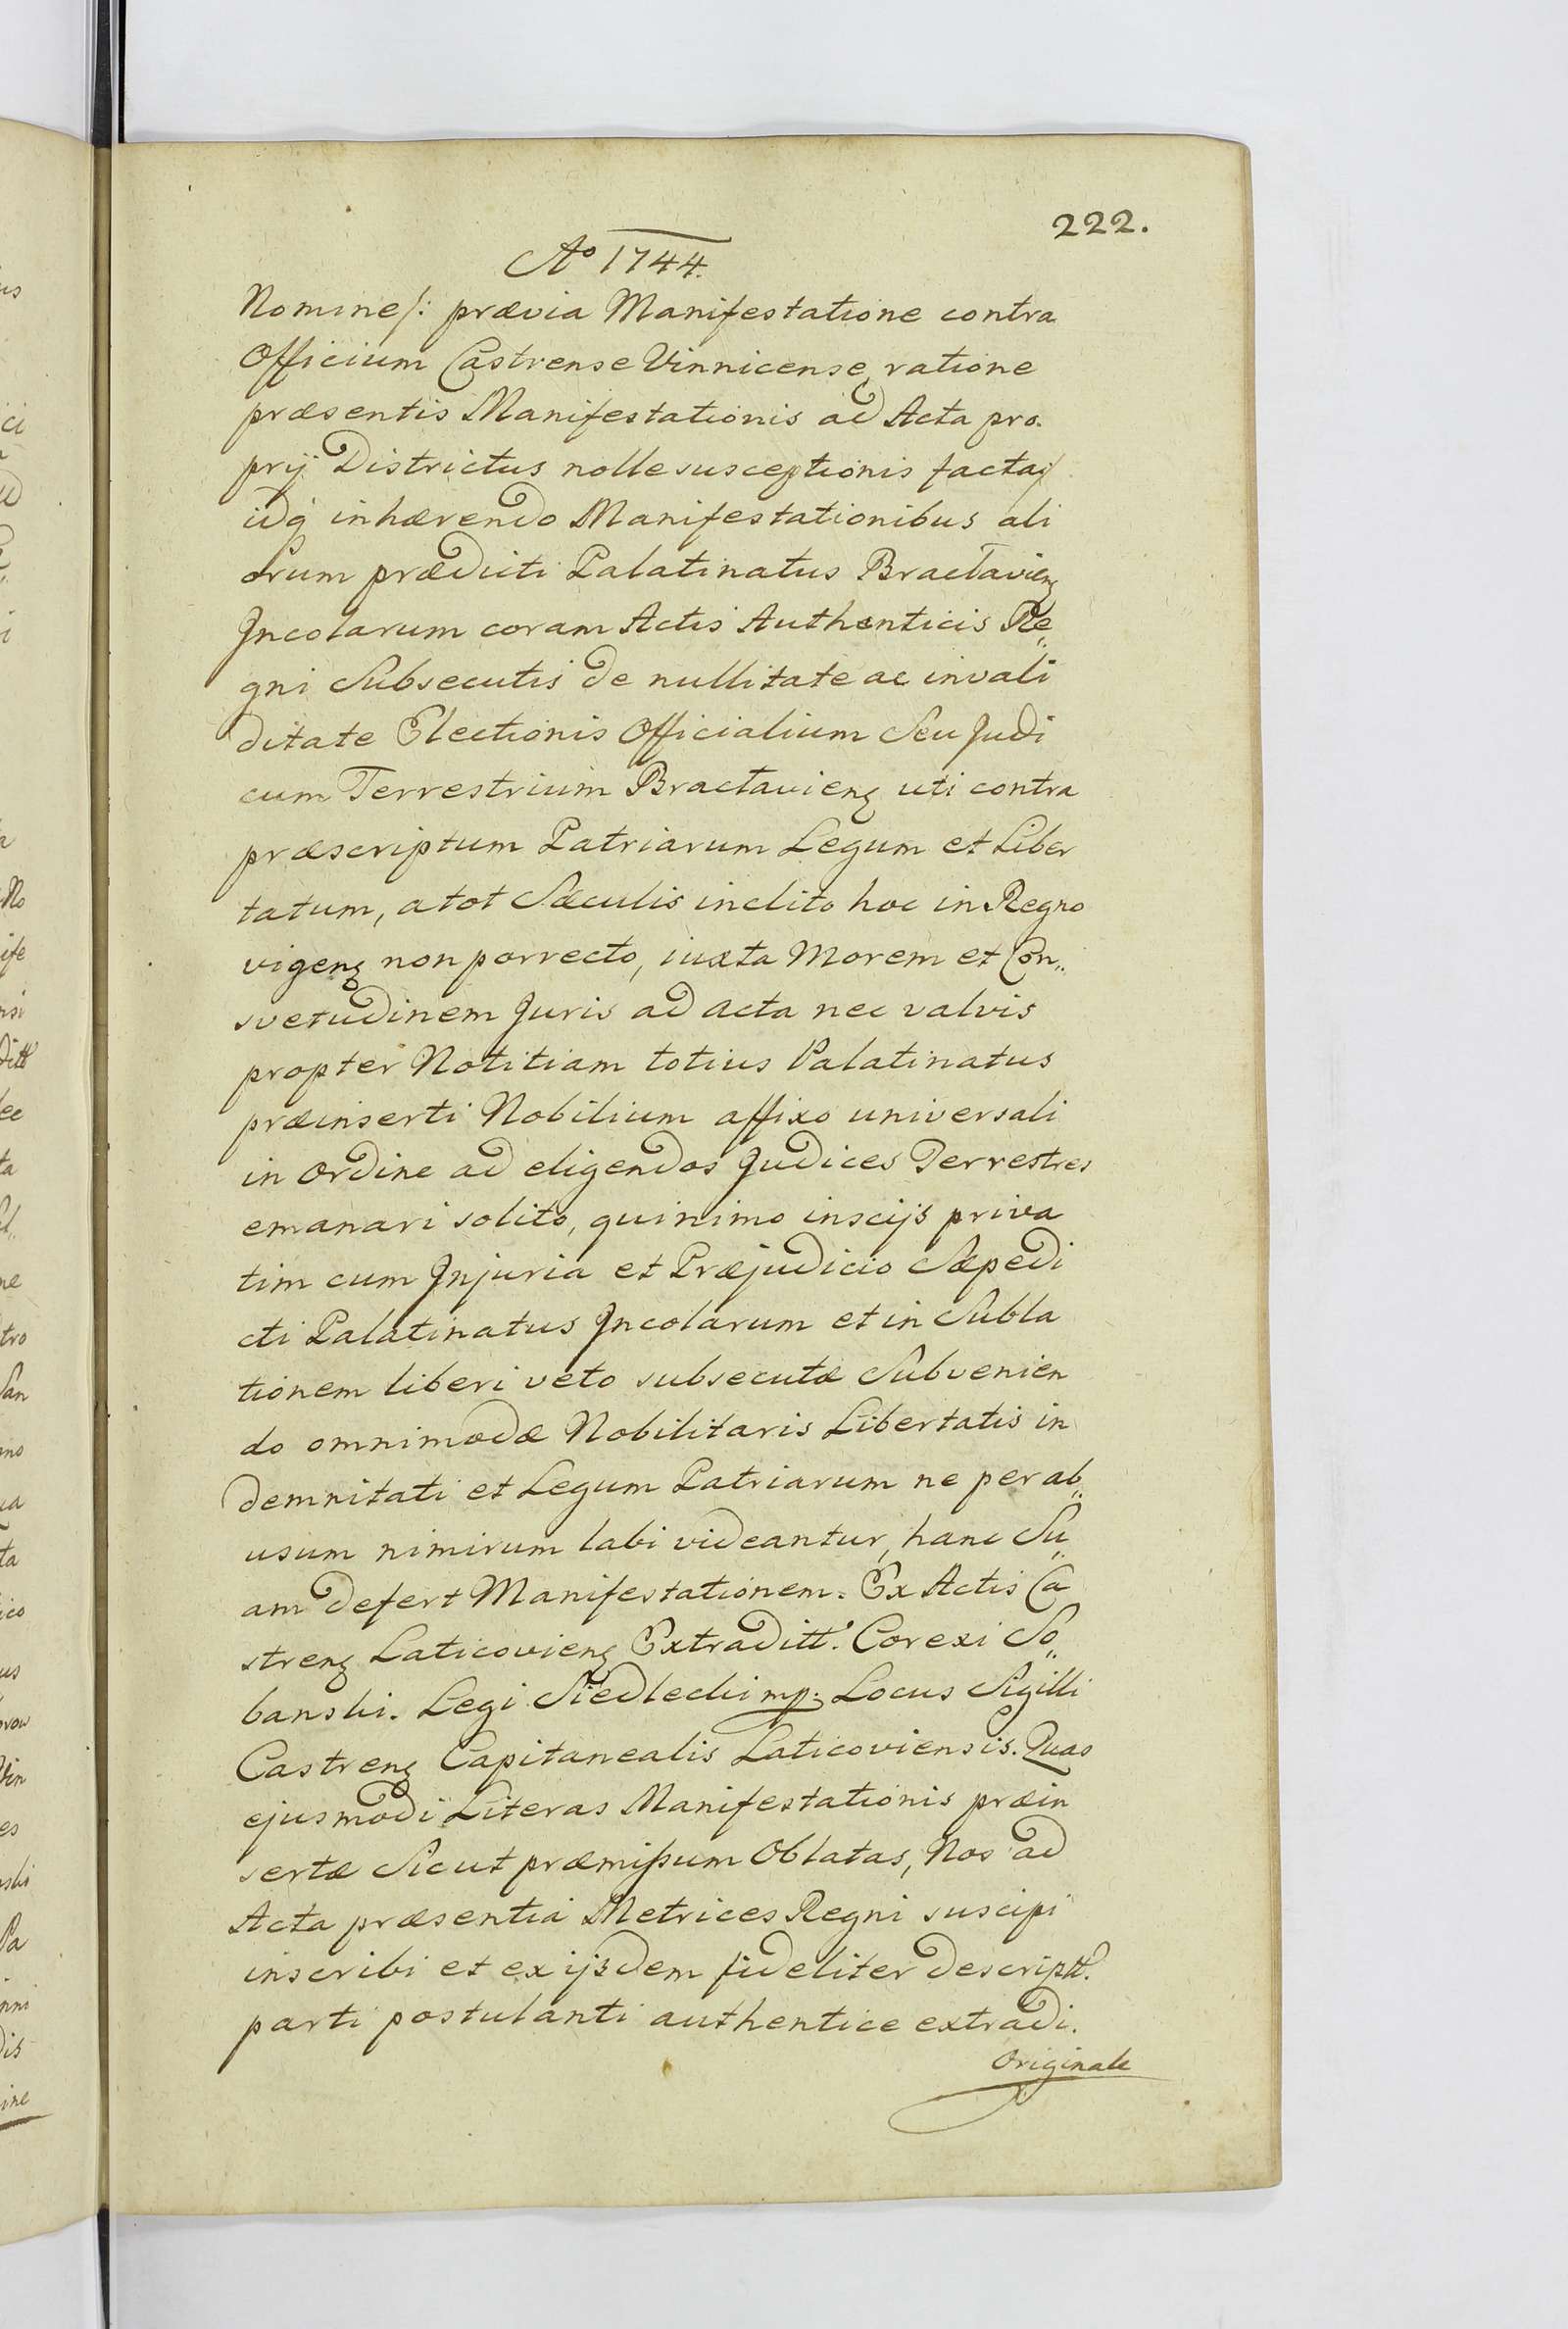 222.
Aº 1744.
Nomine/: prævia Manifestatione contra
Officium Castrense Vinnicense, ratione
præsentis Manifestationis ad Acta pro.
prij Districtus nolle susceptionis facta/
idq inhærendo Manifestationibus ali
orum prædicti Palatinatus Braclavienę
Incolarum coram Actis Authenticis Re„
gni Subsecutis de nullitate ac invali
ditate Electionis Officialium Seu Judi
cum Terrestrium Bractavienę uti contra
præscriptum Patriarum Legum et Liber
tatum, a tot Sæculis inclito hoc in Regno
vigenę non porrecto, iuxta Morem et Con„
svetudinem Juris ad acta nec valvis
propter Notitiam totius Palatinatus
præinserti Nobilium affixo universali
in ordine ad eligendos Judices Terrestres
emanari solito, quinimo inscijs priva
tim cum Injuria et Præjudicio Sæpedi
cti Palatinatus Incolarum et in Subla
tionem liberi veto subsecutæ Subvenien
do omnimodæ Nobilitaris Libertatis in
demnitati et Legum Patriarum ne per ab„
usum nimirum labi videantur, hanc Su„
am defert Manifestationem. Ex Actis Ca
strenę Laticovienę Extraditt. Corexi So„
banski. Legi Siedlecki mp. Locus Sigilli
Castrenę Capitanealis Laticoviensis. Quas
ejusmodi Literas Manifestationis præin
sertæ Sicut præmissum Oblatas, Nos ad
Acta præsentia Metrices Regni suscipi
inscribi et ex ijsdem fideliter descriptt.
parti postulanti authentice extradi.
Originale